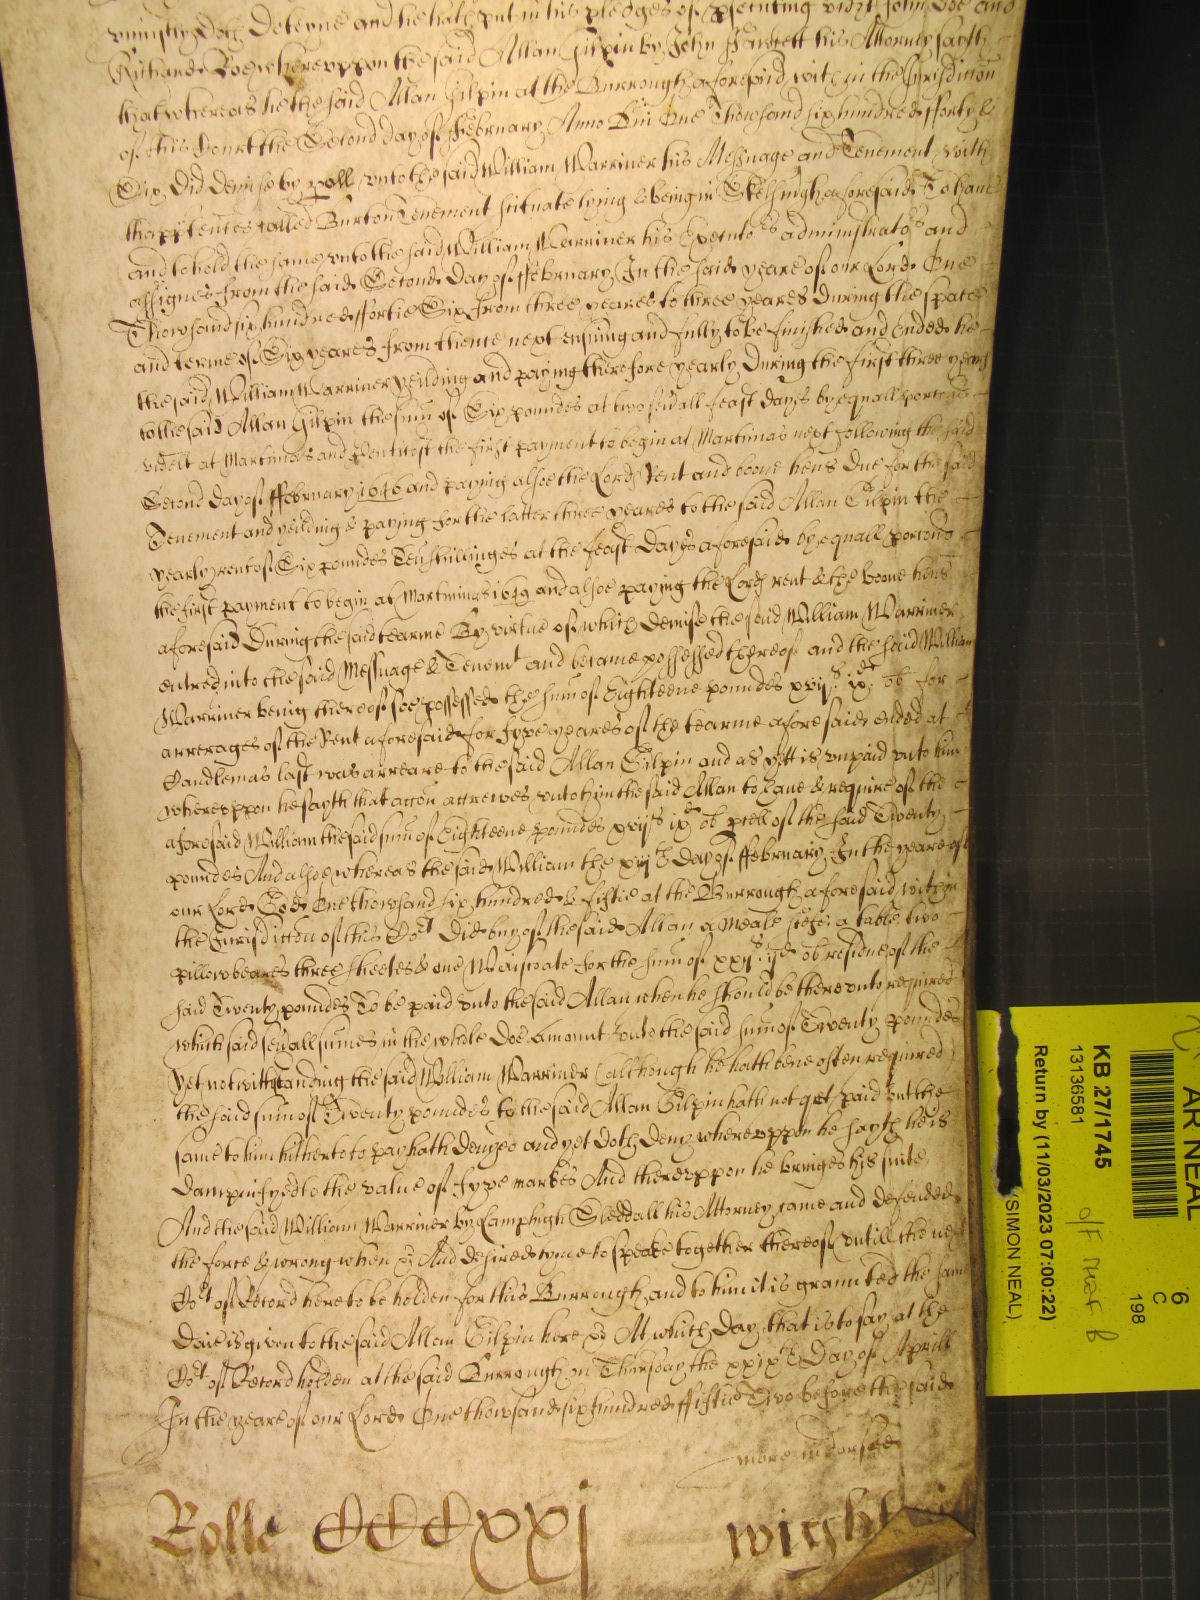 uniustly doth deteyne and he hath put in his pledges of psecuting vidzt John Doe and
Richard Roe whereuppon the said Allan Gilpin by John ffawcett his Attorney sayth
that whereas he the said Allan Gilpin at the Burrough aforesaid within the Jurisdiccon
of this Court the Second day of ffebruary Anno Dni One Thowsand six hundred fforty &
Six did demise by poll unto the said William Warriner his Messuage and Tenement with
thapptences called Burton Tenement scituate lying & being in Skelsmgh aforesaid To have
and to hold the same unto the said William Warriner his Executors administrators and
assignes from the said Second day of ffebruary In the said yeare of our Lord One
Thowsand six hundred ffortie Six from three yeares to three yeares during the space
and terme of Six yeares from thence next ensuing and fully to be finished and ended he
the said William Warriner yeilding and paying therefore yearly during the first three years
to the said Allan Gilpin the sum of Six poundes at two sevall feast dayes by equall porcons
videlt at Martimas and Pentecost the first payment to begin at Martimas next following the said
Second day of ffebruary 1646 and paying alsoe the Lords Rent and boone hens due for the said
Tenement and yeilding & paying for the latter three yeares to the said Allan Gilpin the
yearly rent of Six poundes Ten shillinges at the feast dayes aforesaid by equall porcons
the first payment to begin at Martimas 1649 and alsoe paying the Lords rent & the boone hens
aforesaid during the said tearme By virtue of which demise the said William Warriner
entred into the said Messuage & Tenemt and became possessed thereof and the said William
Warriner being thereof soe possessed the sum of Eighteene poundes xvijs ixd ob for
arrerages of the Rent aforesaid for fyve yeares of the tearme aforesaid ended at
Candlemas last was arreare to the said Allan Gilpin and as yett is unpaid unto him
whereuppon he sayth that accon accrewes unto him the said Allan to have & require of the
aforesaid William the said sum of Eighteene poundes xvijs ixd ob pcell of the said Twenty
poundes And alsoe whereas the said William the day of ffebruary In the yeare of
our Lord God One thowsand six hundred & fiftie at the Burrough aforesaid within
the Jurisdiccon of this Cort did buy of the said Allan a meale a table two
pillowbeares three sheetes & one Waiscoate for the sum of xxijs ijd ob residue of the
said Twenty poundes To be paid unto the said Allan when he should be thereunto required
which said sevall sumes in the whole doe amount unto the said sum of Twenty poundes
Yet notwithstanding the said William Warriner (although he hath bene often required)
the said sum of Twenty poundes to the said Allan Gilpin hath not yet paid but the
same to him hitherto to pay hath denyed and yet doth deny whereuppon he sayth he is
dampnifyed to the value of fyve markes And thereuppon he bringes his suite
And the said William Warriner by Lamplugh Sleddall his Attorney came and defended
the force & wrong when &c And desired tyme to speake together thereof untill the next
Cort of Record here to be holden for this Burrough and to him it is graunted the same
daie is given to the said Allan Gilpin here &c At which day that is to say at the
Cort of Record holden at the said Burrough on Thursday the xxixth day of Aprill
In the yeare of our Lord One thowsand six hundred ffiftie Two before the said
more indorsed
Rolle CCCCxxj wight
AR NEAL
6
C
198
KB 27/1745
13136581
Return by (11/03/2023 07:00:22)
(SIMON NEAL)